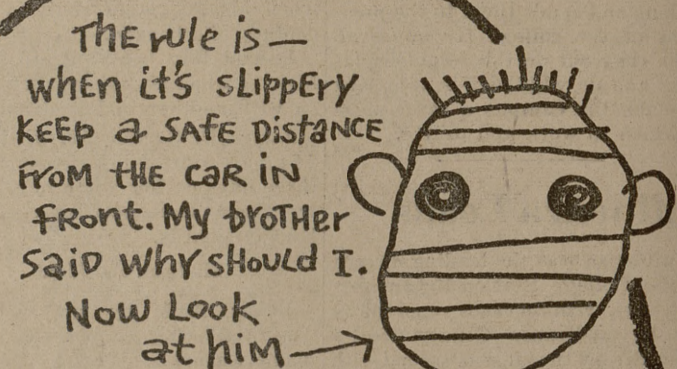 ThE rule is —
whEn it's sLippEry
KEEp a SAfE DistaNCE
FroM tHE CaR iN
fRont. My broTHer
SaiD Why sHouLd I.
Now Look
at him